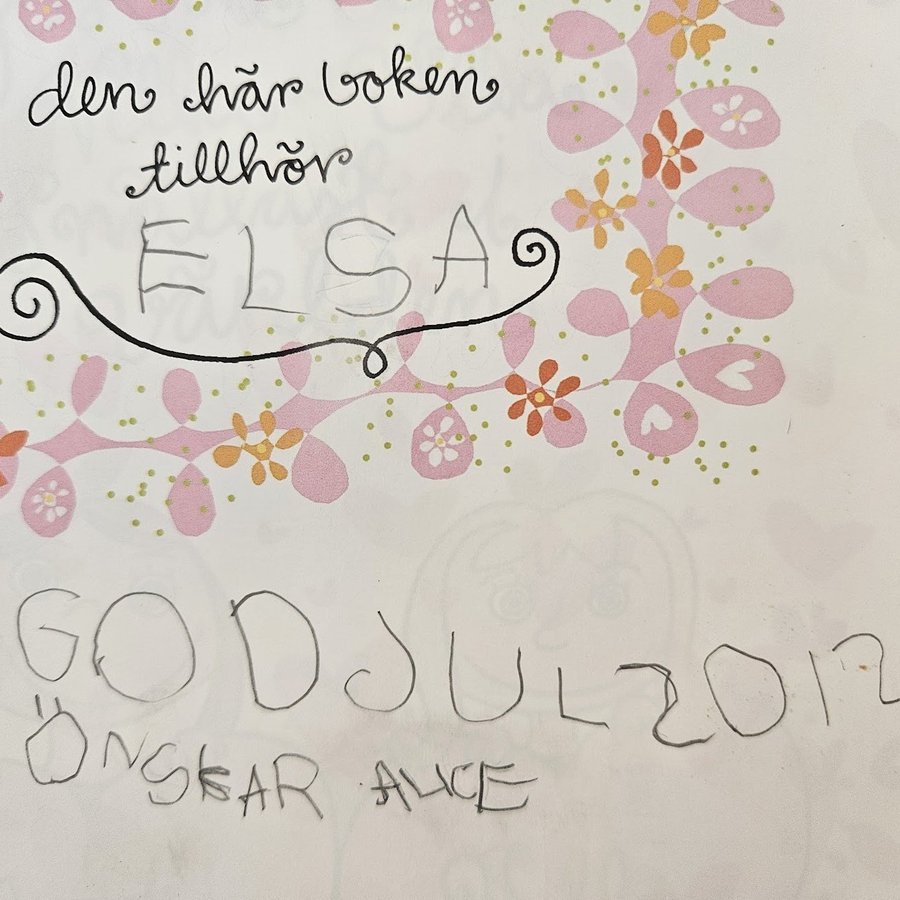 den här boken
tillhör
ELSA
GOD JUL 2012
ÖNSKAR ALICE